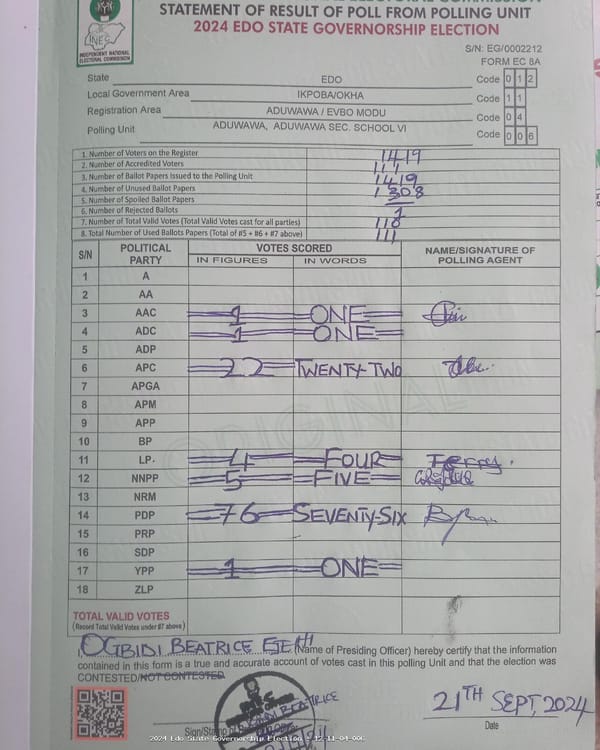 STATEMENT OF RESULT OF POLL FROM POLLING UNIT
2024 EDO STATE GOVERNORSHIP ELECTION
INEC
INDEPENDENT NATIONAL
ELECTORAL COMMISSION
S/N: EG/0002212
FORM EC 8A
State EDO Code 0 1 2
Local Government Area IKPOBA/OKHA Code 1 1
Registration Area ADUWAWA / EVBO MODU Code 0 4
Polling Unit ADUWAWA, ADUWAWA SEC. SCHOOL VI Code 0 0 6
1. Number of Voters on the Register 1419
2. Number of Accredited Voters 111
3. Number of Ballot Papers Issued to the Polling Unit 1419
4. Number of Unused Ballot Papers 1308
5. Number of Spoiled Ballot Papers
6. Number of Rejected Ballots 1
7. Number of Total Valid Votes (Total Valid Votes cast for all parties) 110
8. Total Number of Used Ballots Papers (Total of #5 + #6 + #7 above) 111
S/N POLITICAL PARTY VOTES SCORED NAME/SIGNATURE OF POLLING AGENT
IN FIGURES IN WORDS
1 A
2 AA
3 AAC 1 ONE
4 ADC 1 ONE
5 ADP
6 APC 22 TWENTY-TWO
7 APGA
8 APM
9 APP
10 BP
11 LP. 4 FOUR
12 NNPP 5 FIVE
13 NRM
14 PDP 76 SEVENTY-SIX
15 PRP
16 SDP
17 YPP 1 ONE
18 ZLP
ORIGINAL
TOTAL VALID VOTES
(Record Total Valid Votes under #7 above)
OGBIDI BEATRICE (Name of Presiding Officer) hereby certify that the information
contained in this form is a true and accurate account of votes cast in this polling Unit and that the election was
CONTESTED/NOT CONTESTED
BEATRICE
21TH SEPT, 2024
Sign/Stamp
Date
2024 Edo State Governorship Election - 12-11-04-006